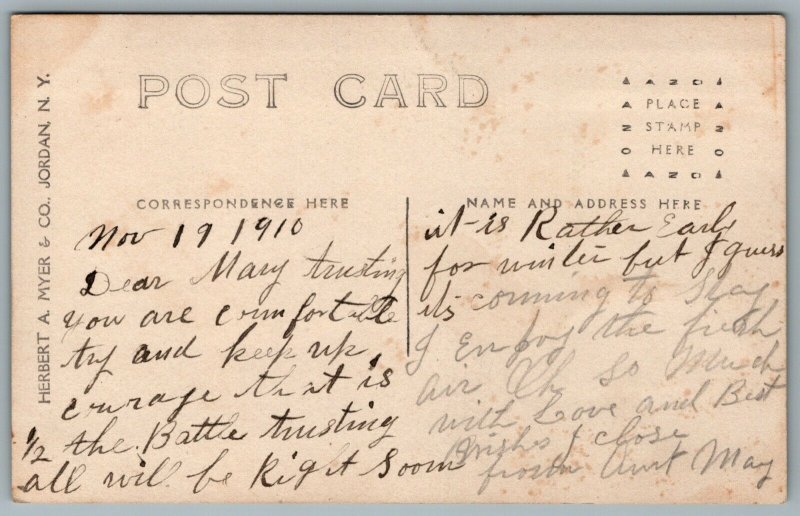 HERBERT A. MYER & CO., JORDAN, N. Y.
POST CARD
AZO
PLACE
STAMP
HERE
AZO
CORRESPONDENCE HERE
NAME AND ADDRESS HERE
Nov 19 1910
Dear Mary trusting
you are comfortable
try and keep up
courage that is
1/2 the Battle trusting
all will be Right Soon
it-is Rather Early
for winter but I guess
its comming to Stay
I Enjoy the fresh
air Oh So Much
with Love and Best
Wishes I close
from Aunt May